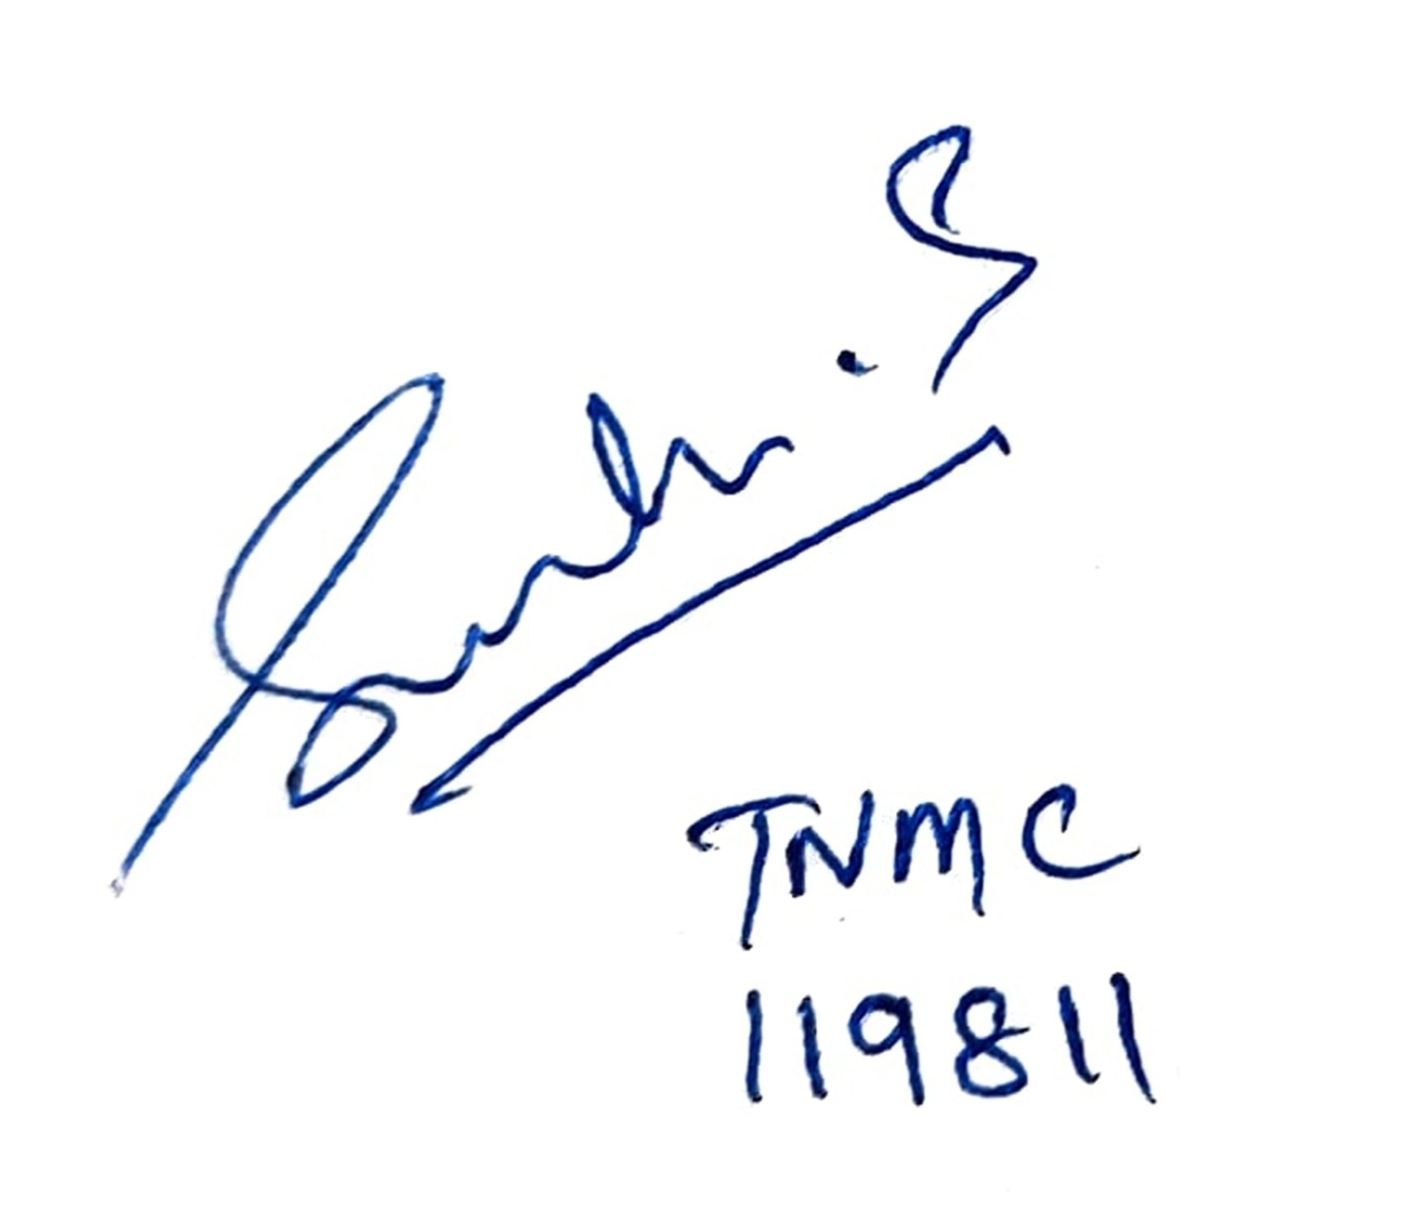 . S
TNMC
119811